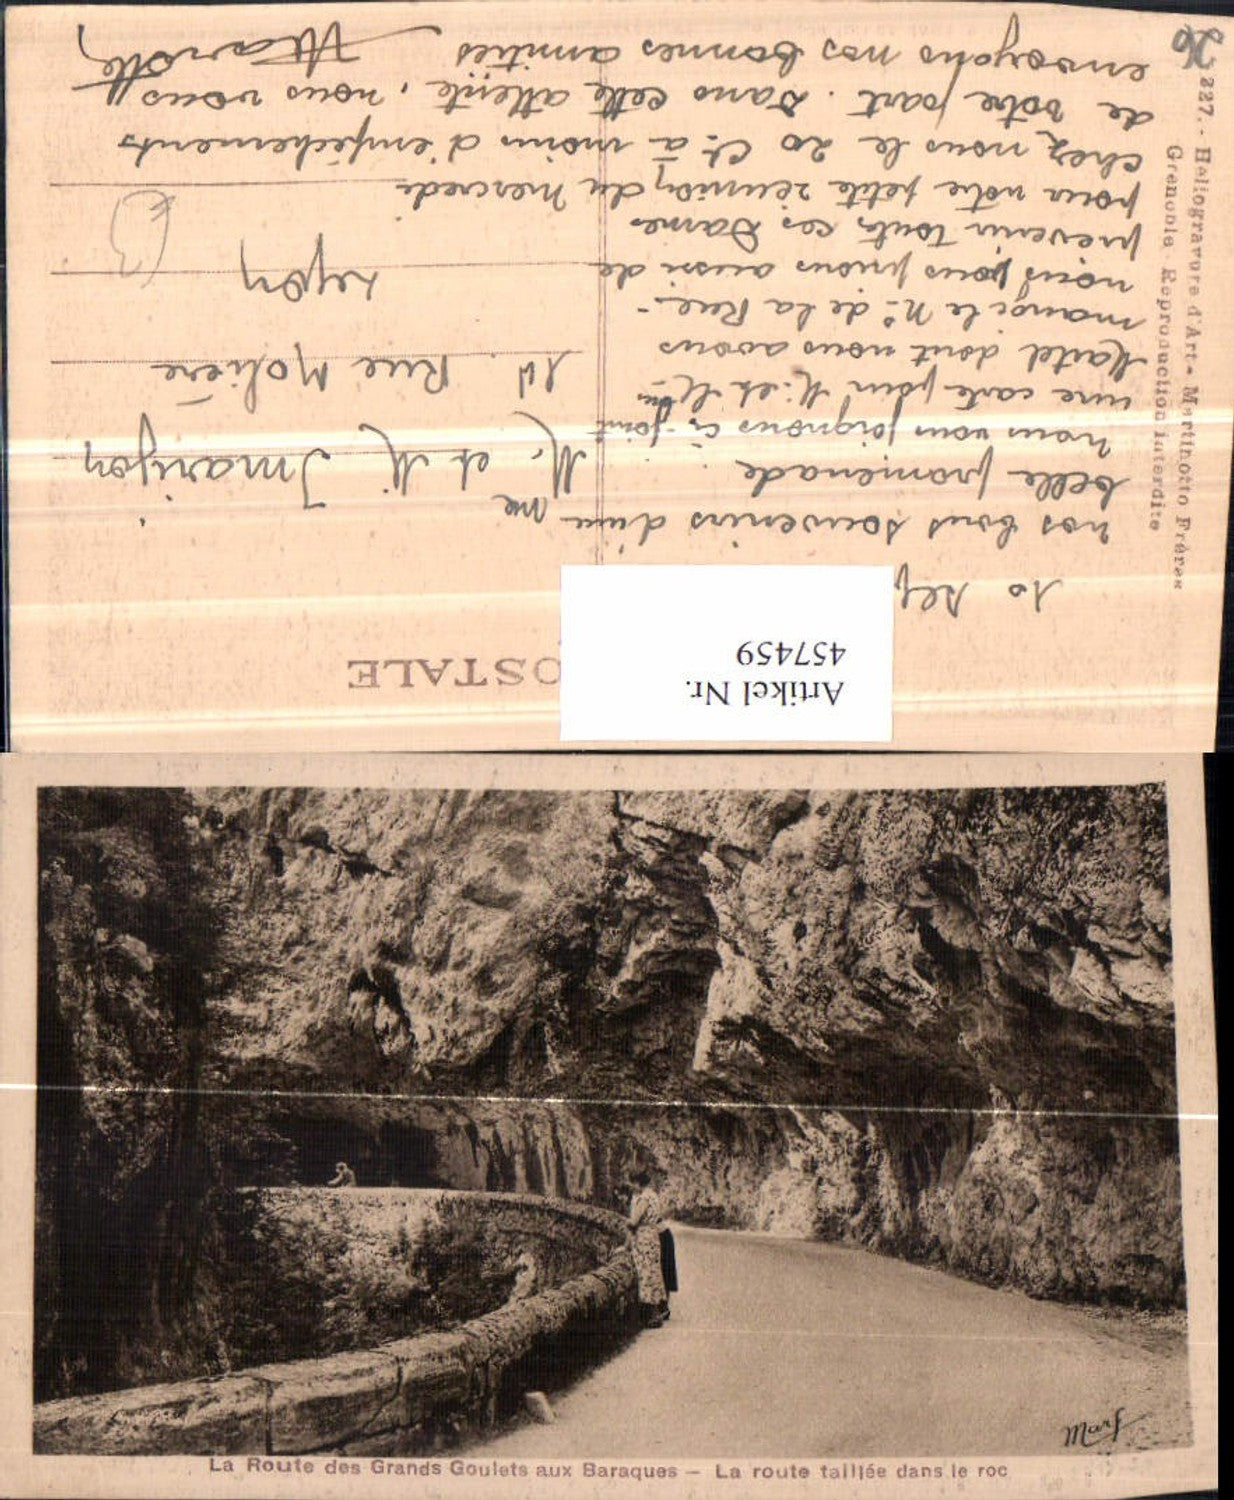 POSTALE
Artikel Nr.
457459
10 Sep
nos bons souvenirs d'une
belle promenade.
nous vous joignons ci-joint
une carte pour M. et Mme
Martel dont nous avons
manqué le No de la Rue -
nous vous prions aussi de
prévenir toutes ces Dames
pour notre petite réunion du Mercredi
chez nous le 20 Ct à moins d'empêchements
de votre part. Dans cette attente, nous vous
envoyons nos bonnes amitiés
M. et Mme Imarijon
10 Rue Molière
Lyon
227. - Héliogravure d'Art - Martinotto Frères
Grenoble - Reproduction interdite
26
La Route des Grands Goulets aux Baraques — La route taillée dans le roc